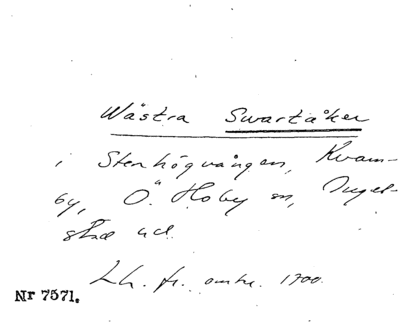 Wästra Swartåker
i Stenhögvången, Kvarn-
by, Ö. Hoby sn, Ingel-
stad hd.
Lh. fr. omkr. 1700.
Nr 7571.